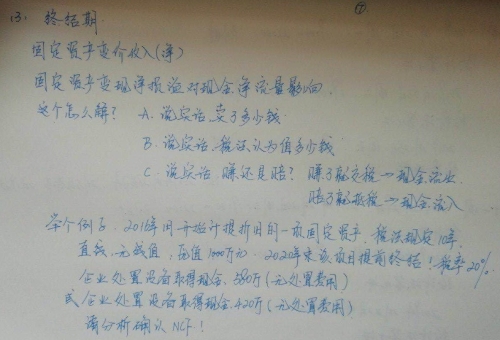 ⑦.
(3) 终结期.
固定资产变价收入(净)
固定资产变现净损溢对现金净流量影响.
这个怎么解? A. 说实话,卖了多少钱.
B. 说实话.税法认为值多少钱
C. 说实话.赚还是赔? 赚了就交税→现金流出
赔了就抵税→现金流入
举个例子. 2016年开始计提折旧的一项固定资产. 税法规定10年.
直线.无残值, 原值1000万元. 2020年末该项目提前终结! 税率20%
企业处置设备取得现金.580万(无处置费用)
或 企业处置设备取得现金.420万(无处置费用)
请分析确认NCF!